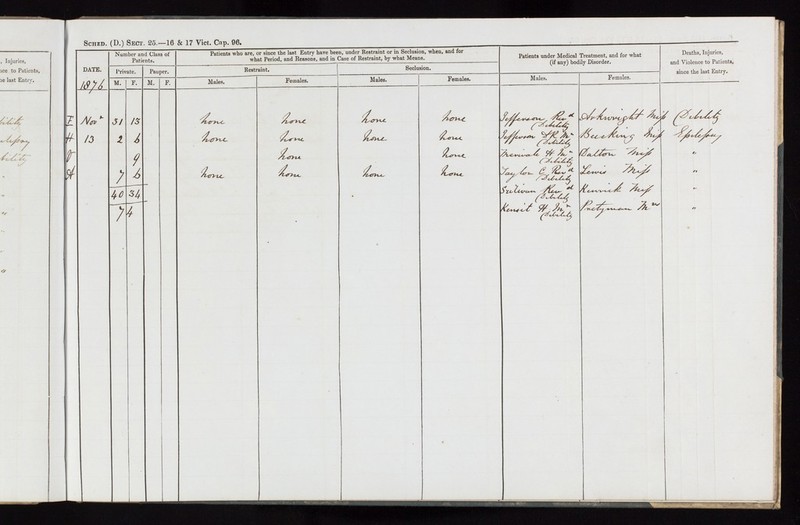 , Injuries,
nce to Patients,
he last Entry.
Sched. (D.) Sect. 25.—16 & 17 Vict. Cap. 96.
DATE.
Number and Class of Patients.
Private. Pauper.
M. F. M. F.
Patients who are, or since the last Entry have been, under Restraint or in Seclusion, when, and for
what Period, and Reasons, and in Case of Restraint, by what Means.
Restraint. Seclusion.
Males. Females. Males. Females.
Patients under Medical Treatment, and for what
(if any) bodily Disorder.
Males. Females.
Deaths, Injuries,
and Violence to Patients,
since the last Entry.
1876
I Novr 31 13 none none none none Jefferson Revd Arkwright Miss (Debility
(Debility
H 13 2 6 none none none none Jefferson Mr Miss Epilepsy
(Debility
V 9 none none H Mr Dalton Miss "
(Debility
7 6 none none none none Taylor C Revd Lewis Miss "
(Debility
40 34 Revd Miss "
(Debility
74 H Mr Pretyman Mrs "
(Debility